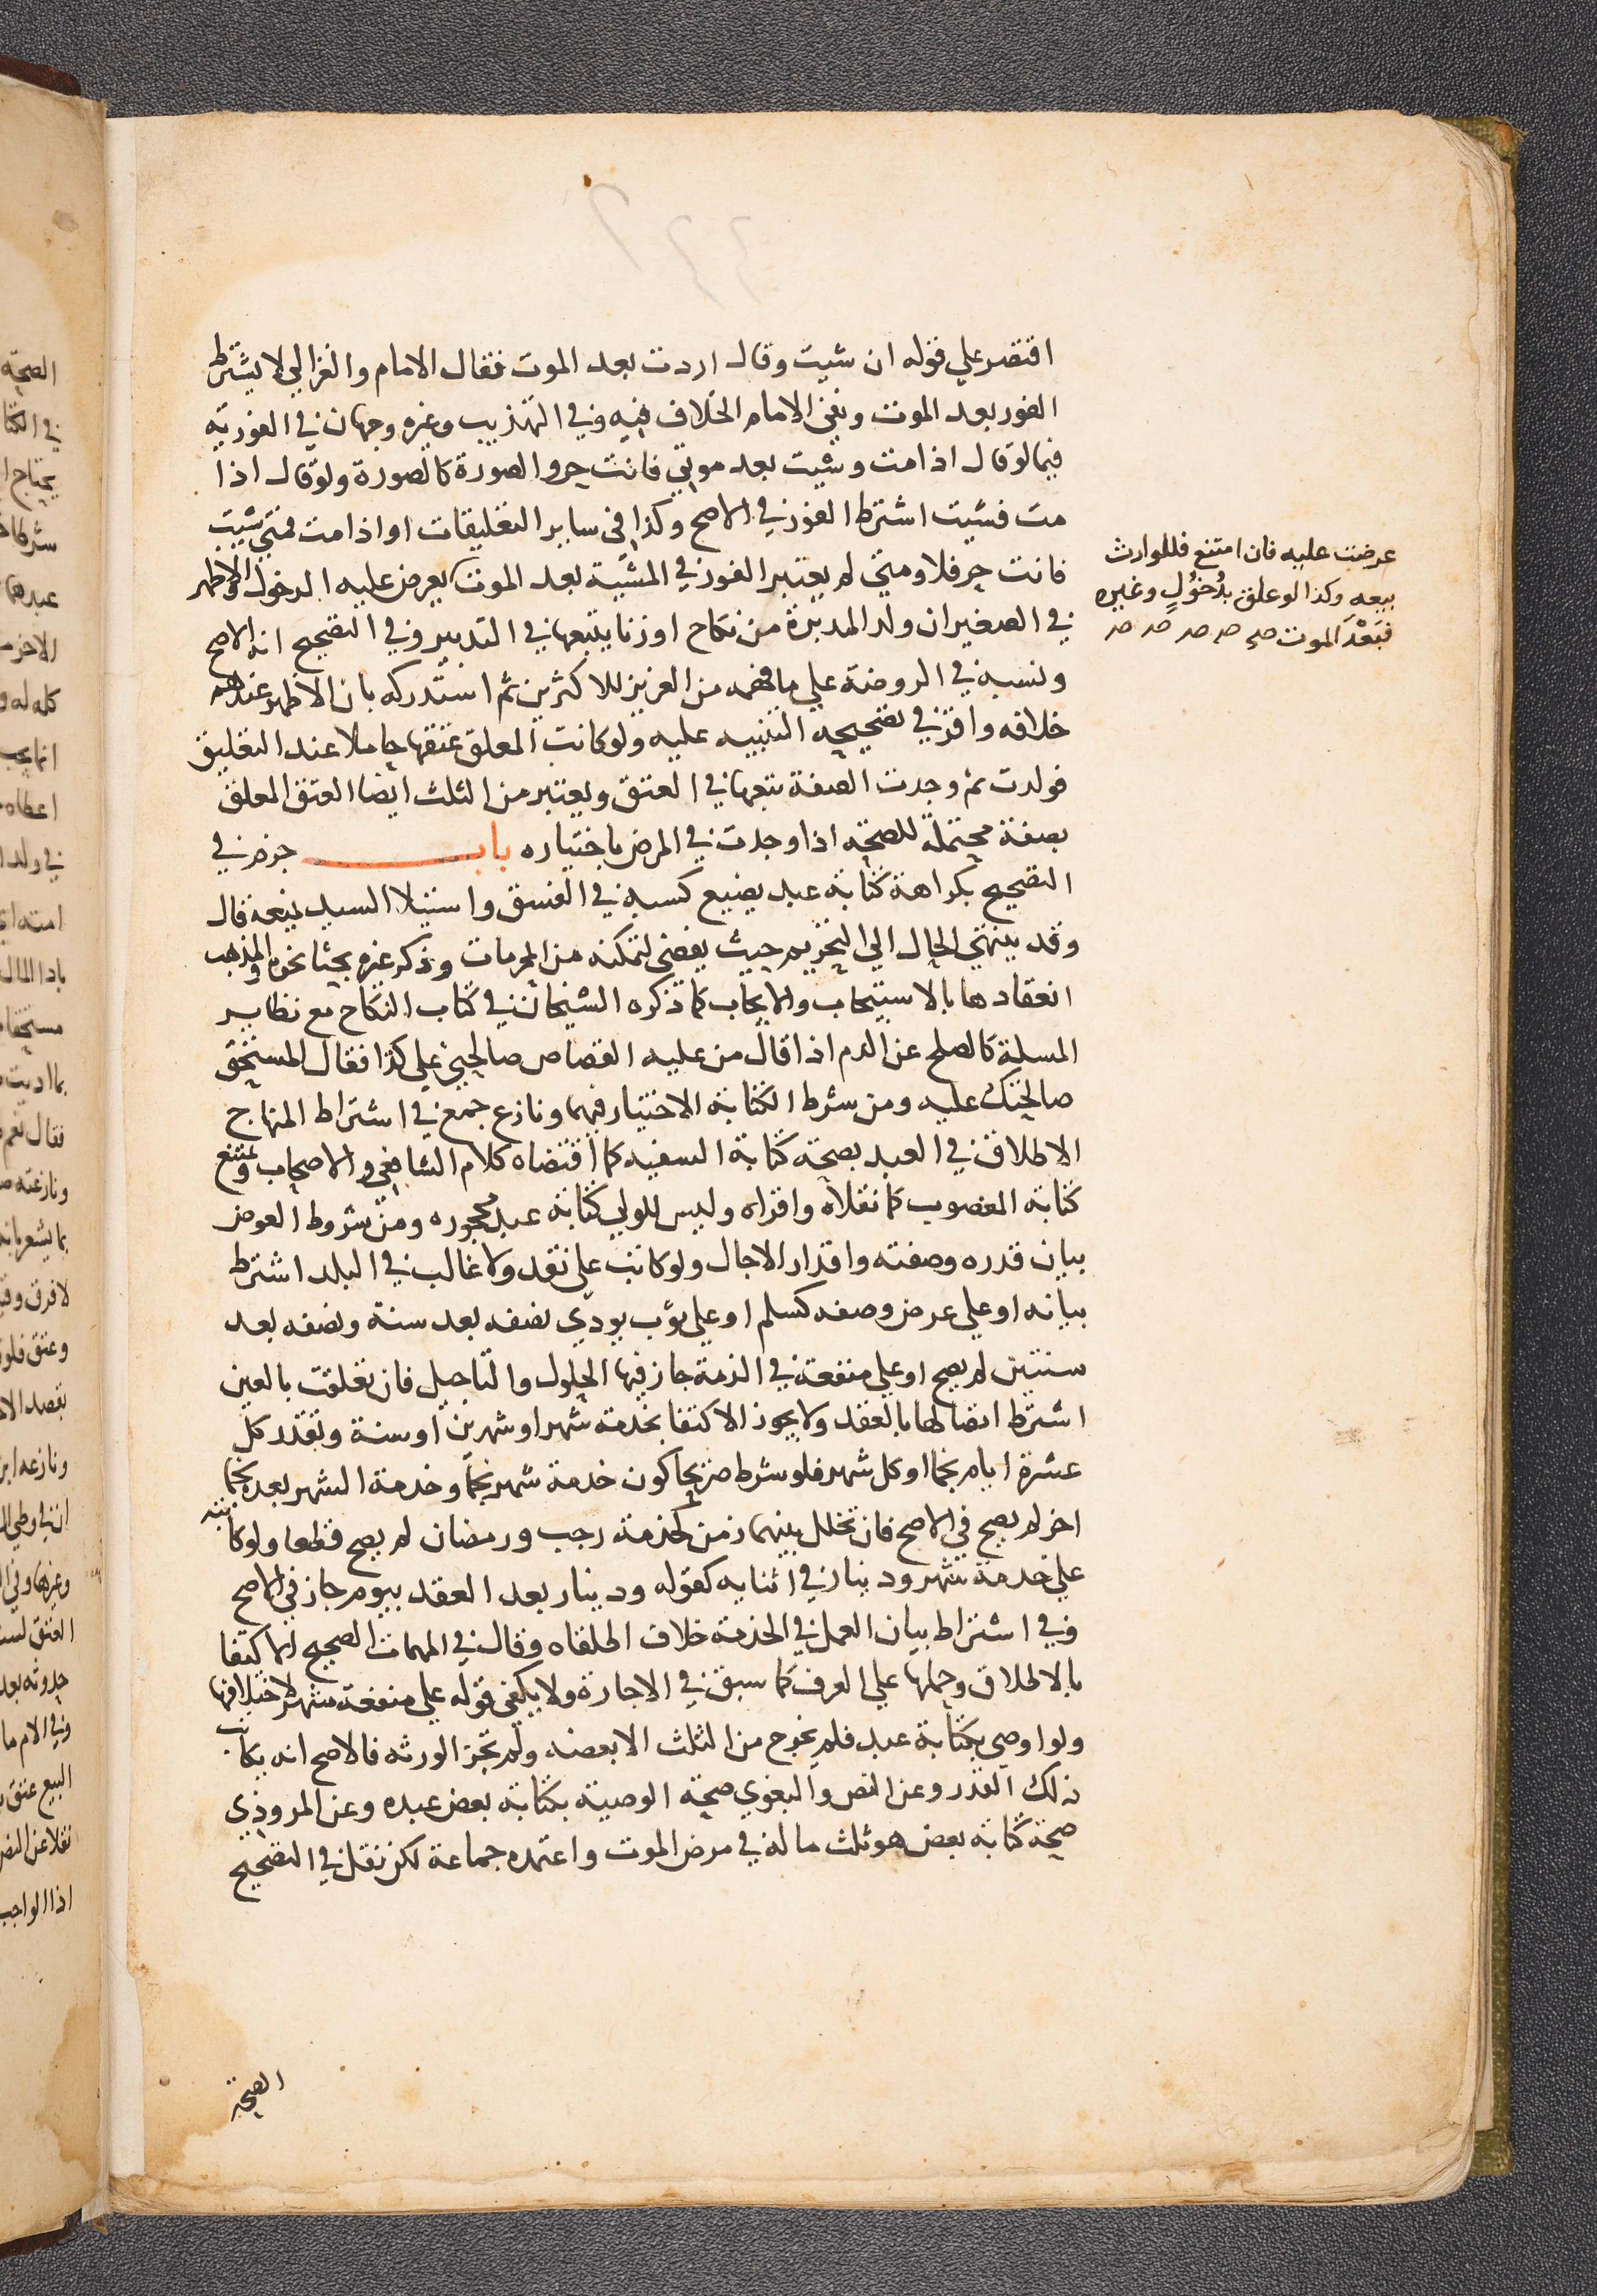 اقتصر علي قوله ان شيت وقال اردت بعد الموت فقال الامام والغزالي لا يشترط
الفور بعد الموت ونفى الامام الخلاف فيه وفي التهذيب وغيره وجهان في الفورية
فيما لو قال اذا مت وشيت بعد موتي فانت حر والصورة كالصورة ولو قال اذا
مت فشيت اشترط الفور في الاصح وكذا في ساير التعليقات او اذا مت فمتى شيت
فانت حر فلا ومتى لم يعتبر الفور في المشية بعد الموت يعرض عليه الدخول والاظهر
في الصغير ان ولد المدبرة من نكاح او زنا يتبعها في التدبير وفي التصحيح انه الاصح
ونسبه في الروضة علي ما فهمه من العزيز للاكثرين ثم استدركه بان الاظهر عندهم
خلافه واقر في تصحيحه التنبيه عليه ولو كانت المعلق عتقها حاملا عند التعليق
فولدت ثم وجدت الصفة تبعها في العتق ويعتبر من الثلث ايضا العتق المعلق
بصفة محتملة للصحة اذا وجدت في المرض باختياره باب جزم في
التصحيح بكراهة كتابة عبد يضيع كسبه في الفسق واستيلا السيد يمنعه قال
وقد ينتهي الحال الي التحريم حيث يفضى لتمكنه من المحرمات وذكر غيره بحثا نحوه والمذهب
انعقادها بالاستيجاب والايجاب كما ذكره الشيخان في كتاب النكاح مع نظاير
المسلة كالصلح عن الدم اذا قال من عليه القصاص صالحني علي كذا فقال المستحق
صالحتك عليه ومن شرط الكتابة الاختيار فيهما ونازع جمع في اشتراط المنهاج
الاطلاق في العبد بصحة كتابة السفيه كما اقتضاه كلام الشافعي والاصحاب ويمتنع
كتابة المغصوب كما نقلاه واقراه وليس للولي كتابة عبد محجوره ومن شروط العوض
بيان قدره وصفته واقدار الاجال ولو كاتب علي نقد ولا غالب في البلد اشترط
بيانه او علي عرض وصفه كسلم او علي ثوب يودي نصفه بعد سنة ونصفه بعد
سنتين لم يصح او علي منفعة في الذمة جاز فيها الحلول والتاجيل فان تعلقت بالعين
اشترط اتصالها بالعقد ولا يجوز الاكتفا بخدمة شهر او شهرين او سنة وتقدر كل
عشرة ايام نجما او كل شهر فلو شرط صريحا كون خدمة شهر نجما وخدمة الشهر بعده نجما
اخر لم يصح في الاصح فان تخلل بينهما زمن كخدمة رجب ورمضان لم يصح قطعا ولو كاتبه
علي خدمة شهر ودينار في اثنايه كقوله ودينار بعد العقد بيوم جاز في الاصح
وفي اشتراط بيان العمل في الخدمة خلاف اطلقاه وقال في المهمات الصحيح الاكتفا
بالاطلاق وحملها علي العرف كما سبق في الاجارة ولا يكفي قوله علي منفعة شهر لاختلافها
ولو اوصى بكتابة عبد فلم يخرج من الثلث الا بعضه ولم تجز الورثه فالاصح انه يكاتب
ذلك القدر وعن النص والبغوي صحة الوصية بكتابة بعض عبده وعن المروذي
صحة كتابة بعض هو ثلث ماله في مرض الموت واعتمده جماعة لكن نقل في التصحيح
الصحة
عرضت عليه فان امتنع فللوارث
بيعه وكذا لو علق بدُخُولٍ وغيره
فبَعْدَ الموت صح صح صح صح صح